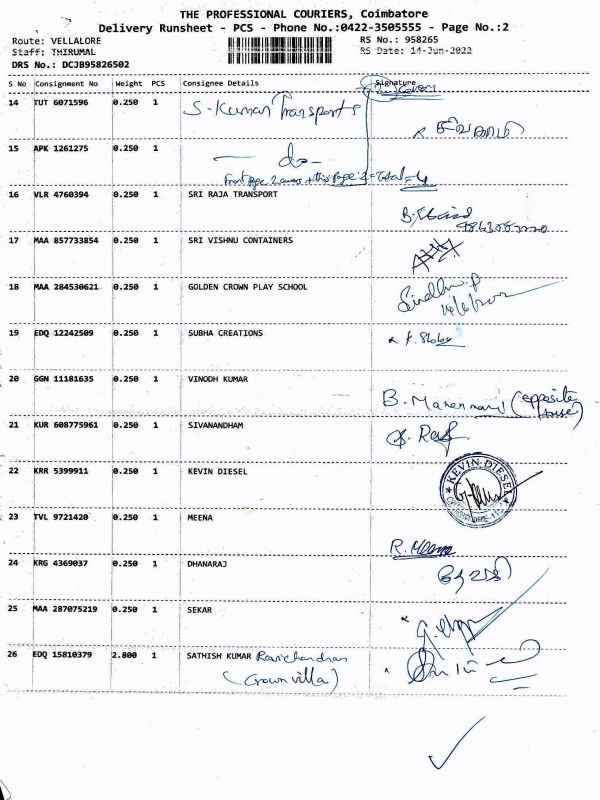 THE PROFESSIONAL COURIERS, Coimbatore
Delivery Runsheet - PCS - Phone No.:0422-3505555 - Page No.:2
Route: VELLALORE RS No.: 958265
Staff: THIRUMAL RS Date: 14-Jun-2022
DRS No.: DCJB95826502
S No Consignment No Weight PCS Consignee Details Signature
14 TUT 6071596 0.250 1 S. Kumar Transports
15 APK 1261275 0.250 1 - do -
Front page 2 covers + this page 2 = Total = 4
16 VLR 4760394 0.250 1 SRI RAJA TRANSPORT
17 MAA 857733854 0.250 1 SRI VISHNU CONTAINERS
18 MAA 284530621 0.250 1 GOLDEN CROWN PLAY SCHOOL
19 EDQ 12242509 0.250 1 SUBHA CREATIONS
20 GGN 11181635 0.250 1 VINODH KUMAR
(opposite
B. house)
21 KUR 608775961 0.250 1 SIVANANDHAM
22 KRR 5399911 0.250 1 KEVIN DIESEL
KEVIN DIESEL
23 TVL 9721420 0.250 1 MEENA
R. Meena
24 KRG 4369037 0.250 1 DHANARAJ
25 MAA 287075219 0.250 1 SEKAR
26 EDQ 15810379 2.800 1 SATHISH KUMAR Ravichandran
(Crown villa)